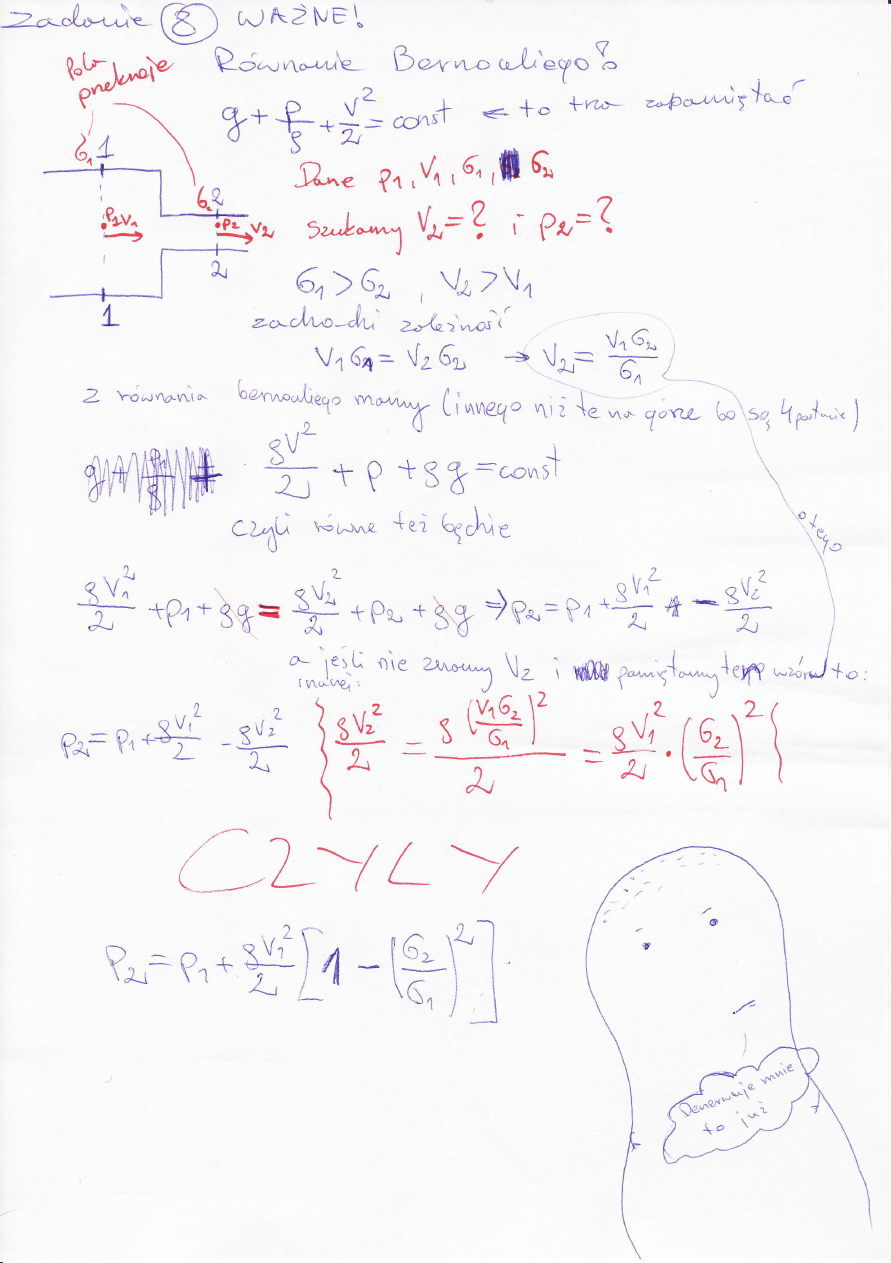 Zadanie 8 WAŻNE!
Pola przekroje
Równanie Bernouliego:
g + p/ρ + V²/2 = const ← to trza zapamiętać
σ₁ 1
Dane p₁, V₁, σ₁, σ₂
σ₂ 2
p₁ V₁
p₂ V₂
Szukamy V₂=? i p₂=?
2
σ₁ > σ₂ , V₂ > V₁
1
zachodzi zależność
V₁σ₁ = V₂σ₂ → V₂ = V₁σ₂/σ₁
z równania bernouliego mamy (innego niż te na górze bo są 4 postacie)
ρV²/2 + p + ρg = const
czyli równe też będzie
z tego
ρV₁²/2 + p₁ + ρg = ρV₂²/2 + p₂ + ρg ⇒ p₂ = p₁ + ρV₁²/2 - ρV₂²/2
a jeśli nie znamy V₂ i pamiętamy ten wzór to:
inaczej:
p₂ = p₁ + ρV₁²/2 - ρV₂²/2 { ρV₂²/2 = ρ(V₁σ₂/σ₁)²/2 = ρV₁²/2 · (σ₂/σ₁)² }
CZYLY
p₂ = p₁ + ρV₁²/2 [1 - (σ₂/σ₁)²]
Denerwuje mnie
to już